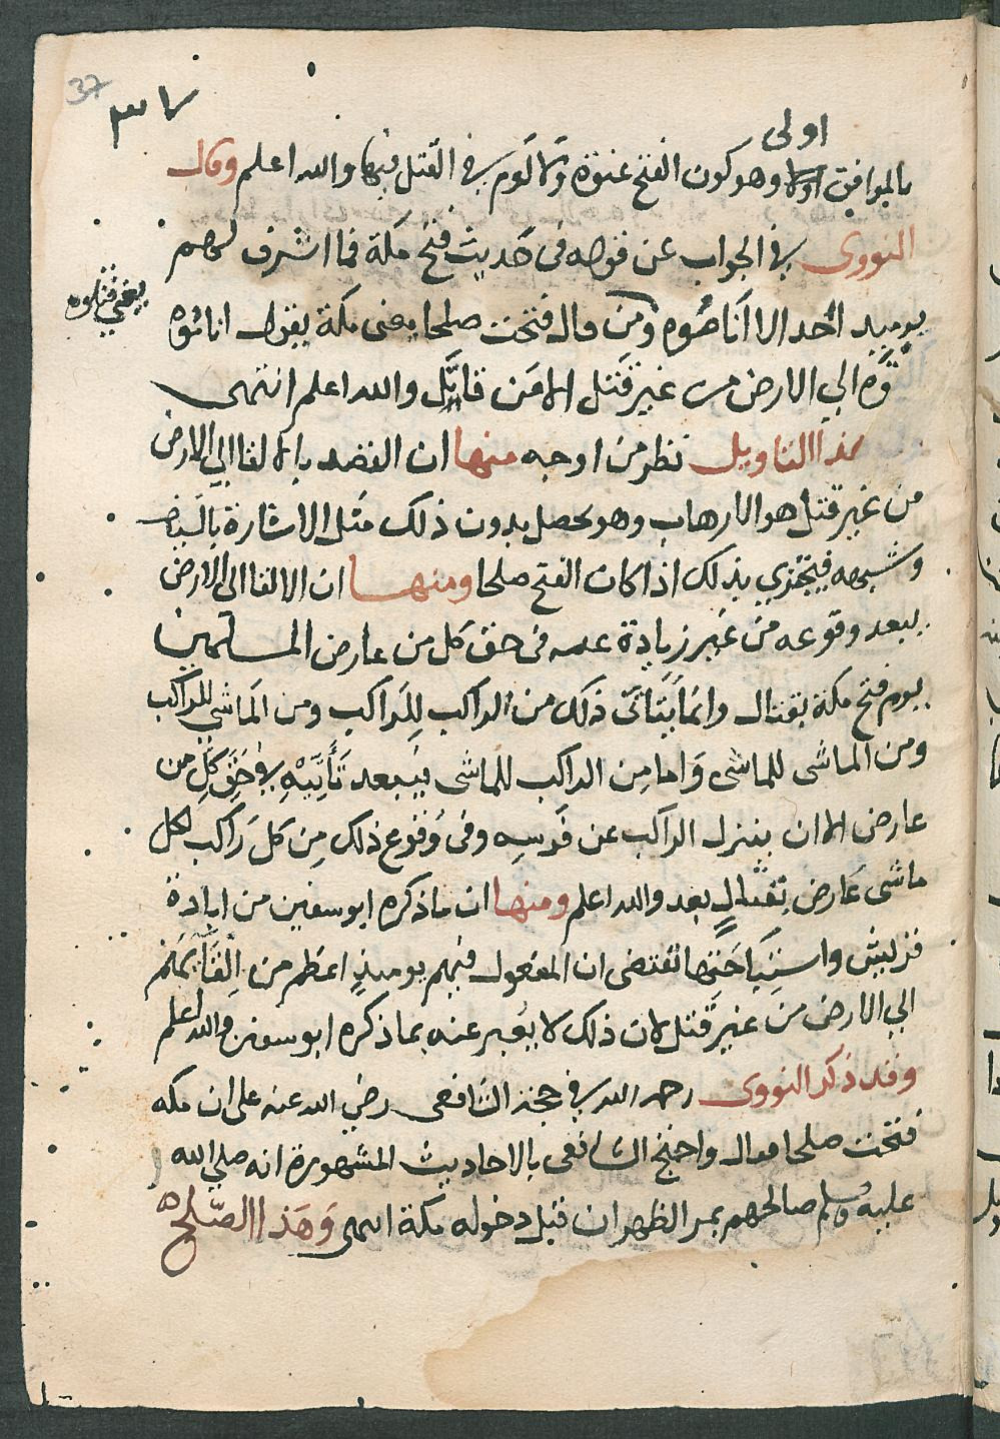 37
٣٧
اولى
بالموافق وهو كون الفتح عنوة ولا لوم في القتل فيها والله اعلم وقال
النووى في الجواب عن قوله فى حديث فتح مكة فما اشرف لهم
يوميذ احد الا اناموه ومن قال فتحت صلحا يقول اناموه
يعني
القوه الي الارض من غير قتل الا من قاتل والله اعلم انتهى
هذا التاويل نظر من اوجه منها ان القصد بالالقا الي الارض
من غير قتل هو الارهاب وهو يحصل بدون ذلك مثل الاشارة بالسيف
وشبهه فيجتزي بذلك اذا كان الفتح صلحا ومنها ان الالقا الى الارض
يبعد وقوعه من غير زيادة عليه فى حق كل من عارض المسلمين
يوم فتح مكة بقتال وانما يتاتى ذلك من الراكب للراكب ومن الماشي للراكب
ومن الماشى للماشى واما من الراكب للماشى فيبعد تأتيه في حق كل من
عارض الا ان ينزل الراكب عن فرسه وفى وقوع ذلك من كل راكب لكل
ماشى عارض بقتال بعد والله اعلم ومنها ان ما ذكره ابو سفين من ابادة
قريش واستباحتها تقتضى ان المفعول فيهم يوميذ اعظم من القايهم
الي الارض من غير قتل لان ذلك لا يعبر عنه بما ذكره ابو سفين والله اعلم
وقد ذكر النووى رحمه الله في حجة الشافعى رضي الله عنه على ان مكه
فتحت صلحا فقال واحتج الشافعى بالاحاديث المشهورة انه صلي الله
عليه وسلم صالحهم بمر الظهران قبل دخوله مكة انتهى وهذا الصلح